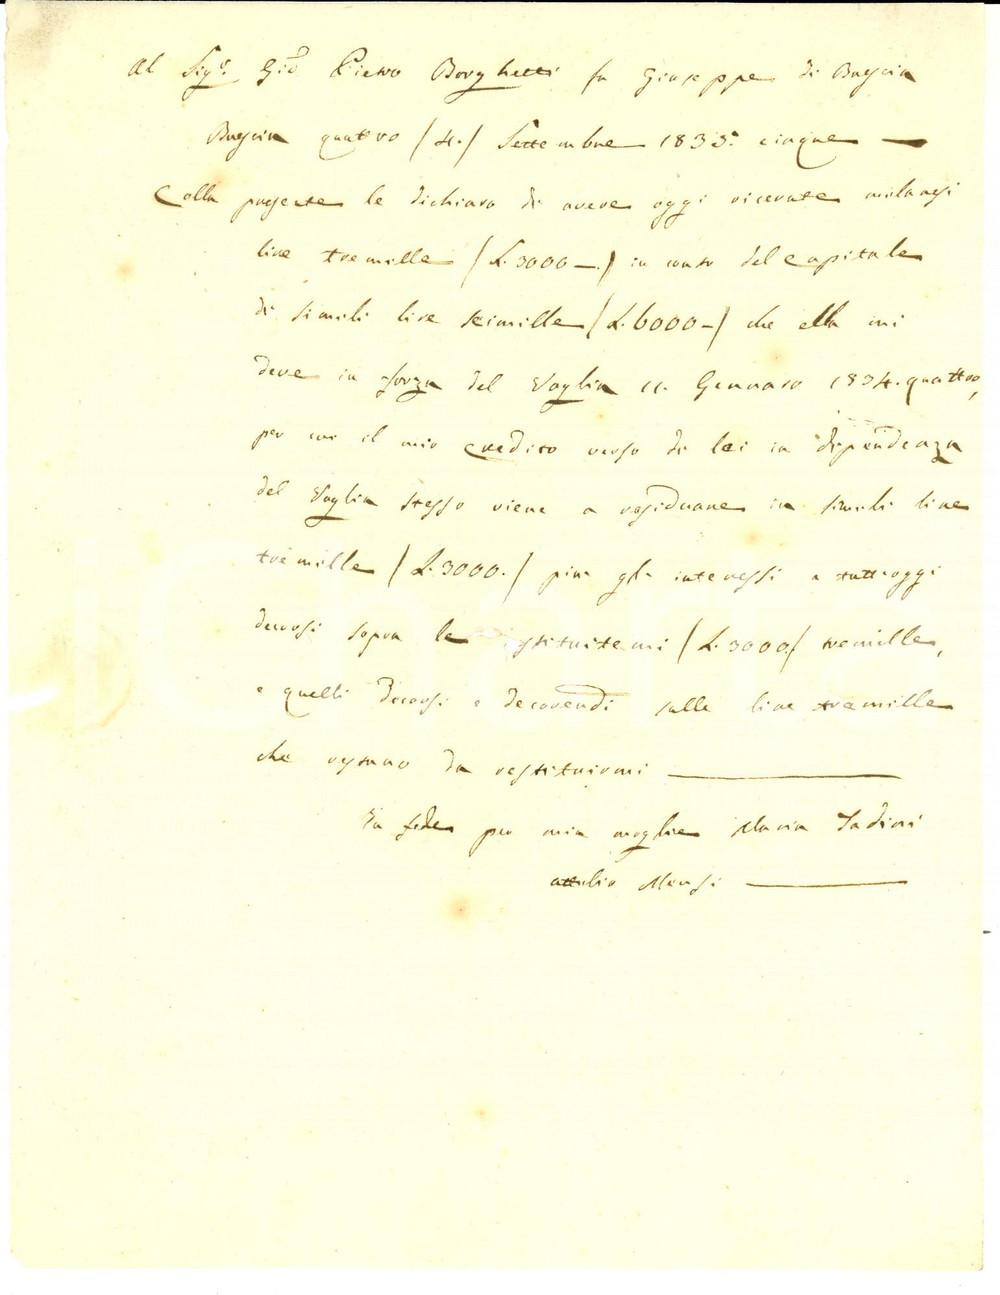 Al Sig.r Gio Pietro Borghetti fu Giuseppe di Brescia
Brescia quattro /4./ Settembre 1835. cinque —
Colla presente le dichiaro di avere oggi ricevute milanesi
lire tremille /L. 3000 —./ in conto del capitale
di simili lire seimille /L. 6000 —/ che ella mi
deve in forza del Vaglia 11. Gennaro 1834. quattro,
per cui il mio credito verso di lei in dipendenza
del Vaglia stesso viene a residuare in simili lire
tremille /L. 3000./ più gli interessi a tutt'oggi
decorsi sopra le restituitemi /L. 3000/ tremille,
e quelli decorsi e decorrendi sulle lire tremille
che restano da restituirmi —
In fede per mia moglie Maria Tadini
Attilio Mensi —